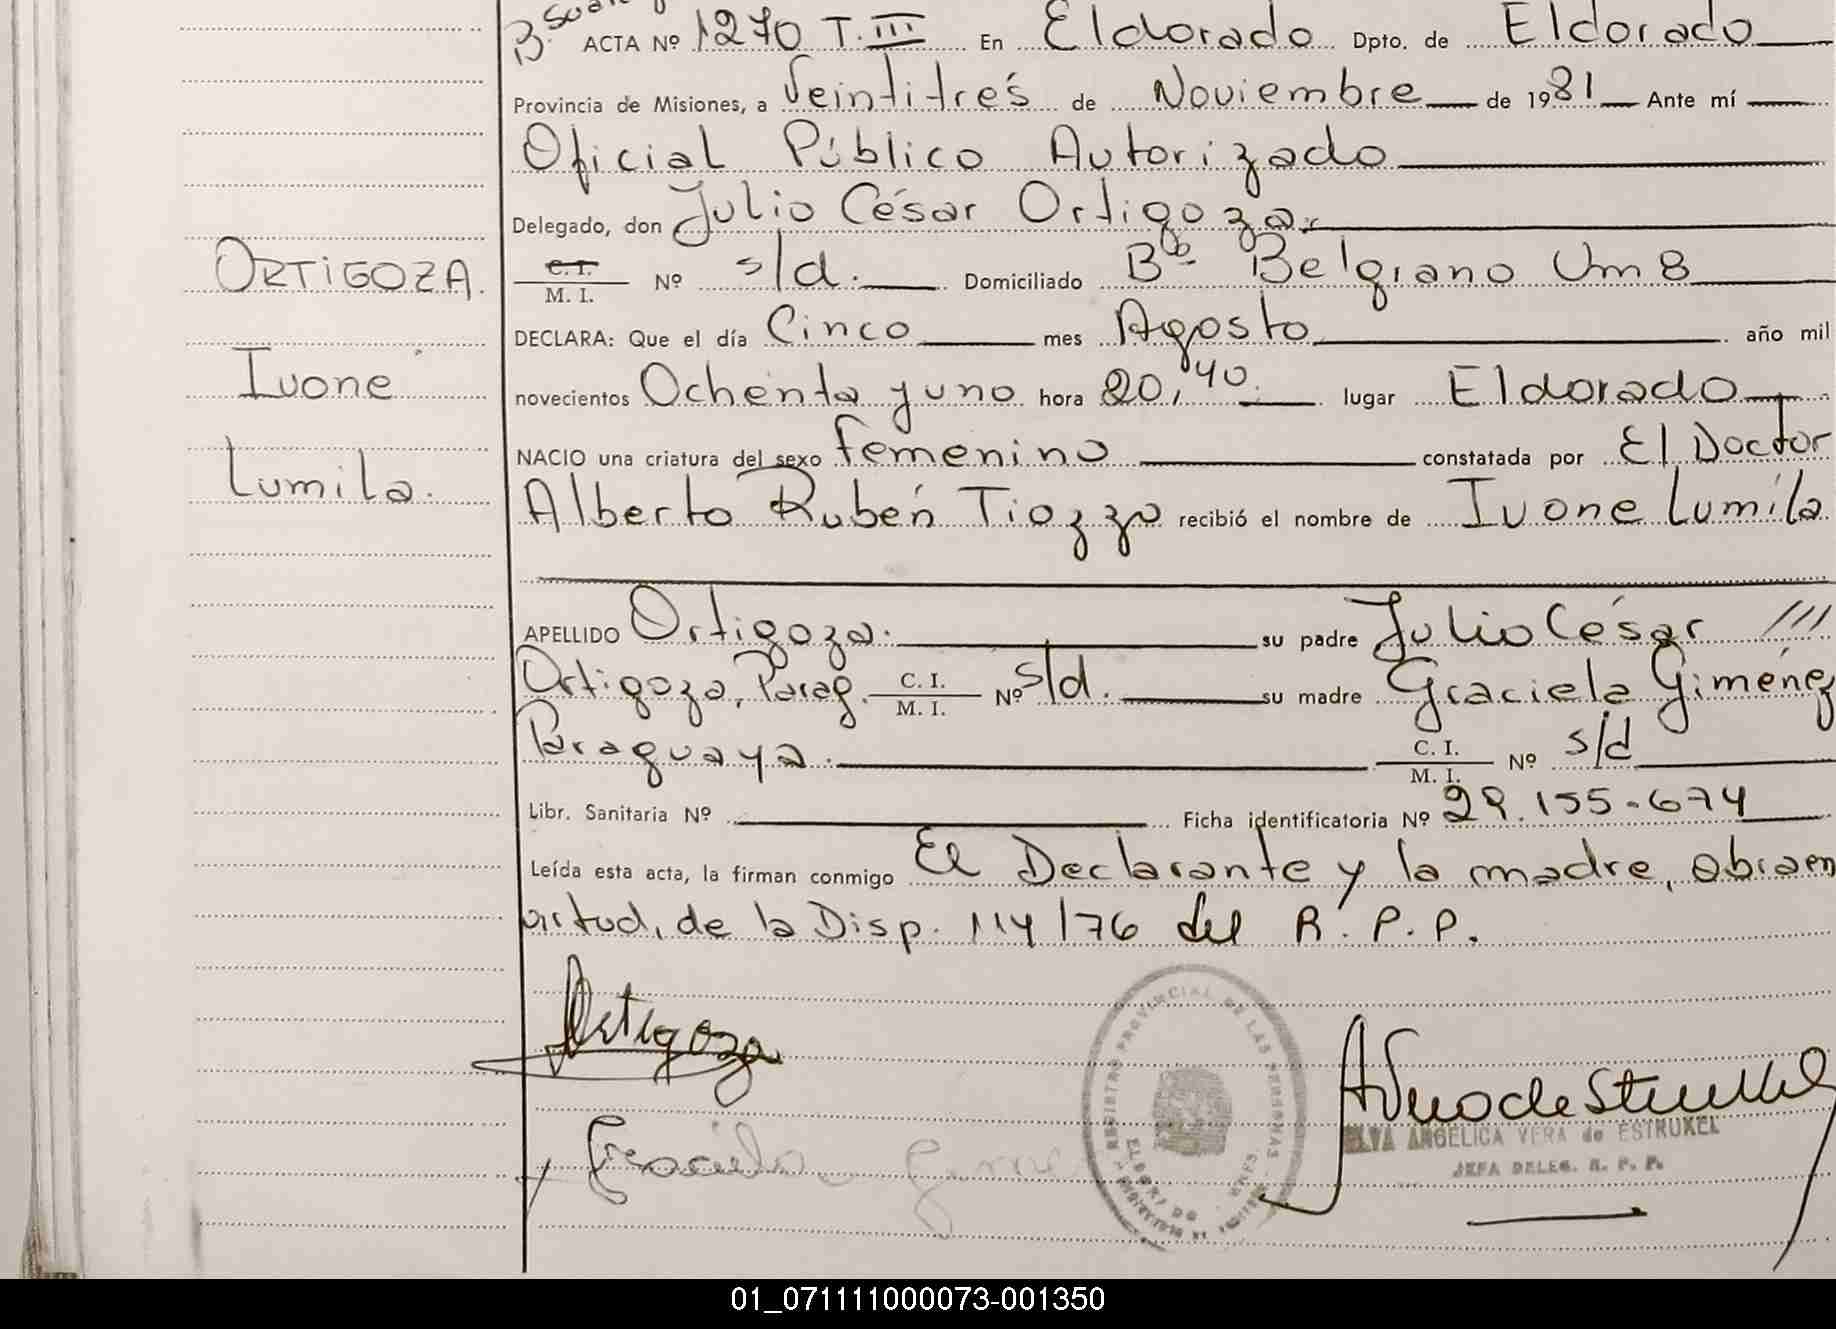 ACTA Nº 1270 T. III En Eldorado Dpto. de Eldorado
Provincia de Misiones, a Veintitrés de Noviembre de 1981 Ante mí
Oficial Público Autorizado
Delegado, don Julio César Ortigoza,
C. I. / M. I. Nº s/d. Domiciliado Bº Belgrano Um 8
DECLARA: Que el día Cinco mes Agosto año mil
novecientos Ochenta y uno hora 20,40 lugar Eldorado
NACIO una criatura del sexo femenino constatada por El Doctor
Alberto Rubén Tiozzo recibió el nombre de Ivone Lumila
APELLIDO Ortigoza. su padre Julio César ///
Ortigoza, Parag. C. I. / M. I. Nº s/d. su madre Graciela Giménez
Paraguaya. C. I. / M. I. Nº s/d
Libr. Sanitaria Nº Ficha identificatoria Nº 29.155.674
Leída esta acta, la firman conmigo El Declarante y la madre, obra en
virtud, de la Disp. 114/76 del R. P. P.
ORTIGOZA.
Ivone
Lumila.
Ortigoza
Graciela
REGISTRO PROVINCIAL DE LAS PERSONAS
ELDORADO
ELVA ANGELICA VERA de ESTRUXEL
JEFA DELEG. R. P. P.
01_071111000073-001350